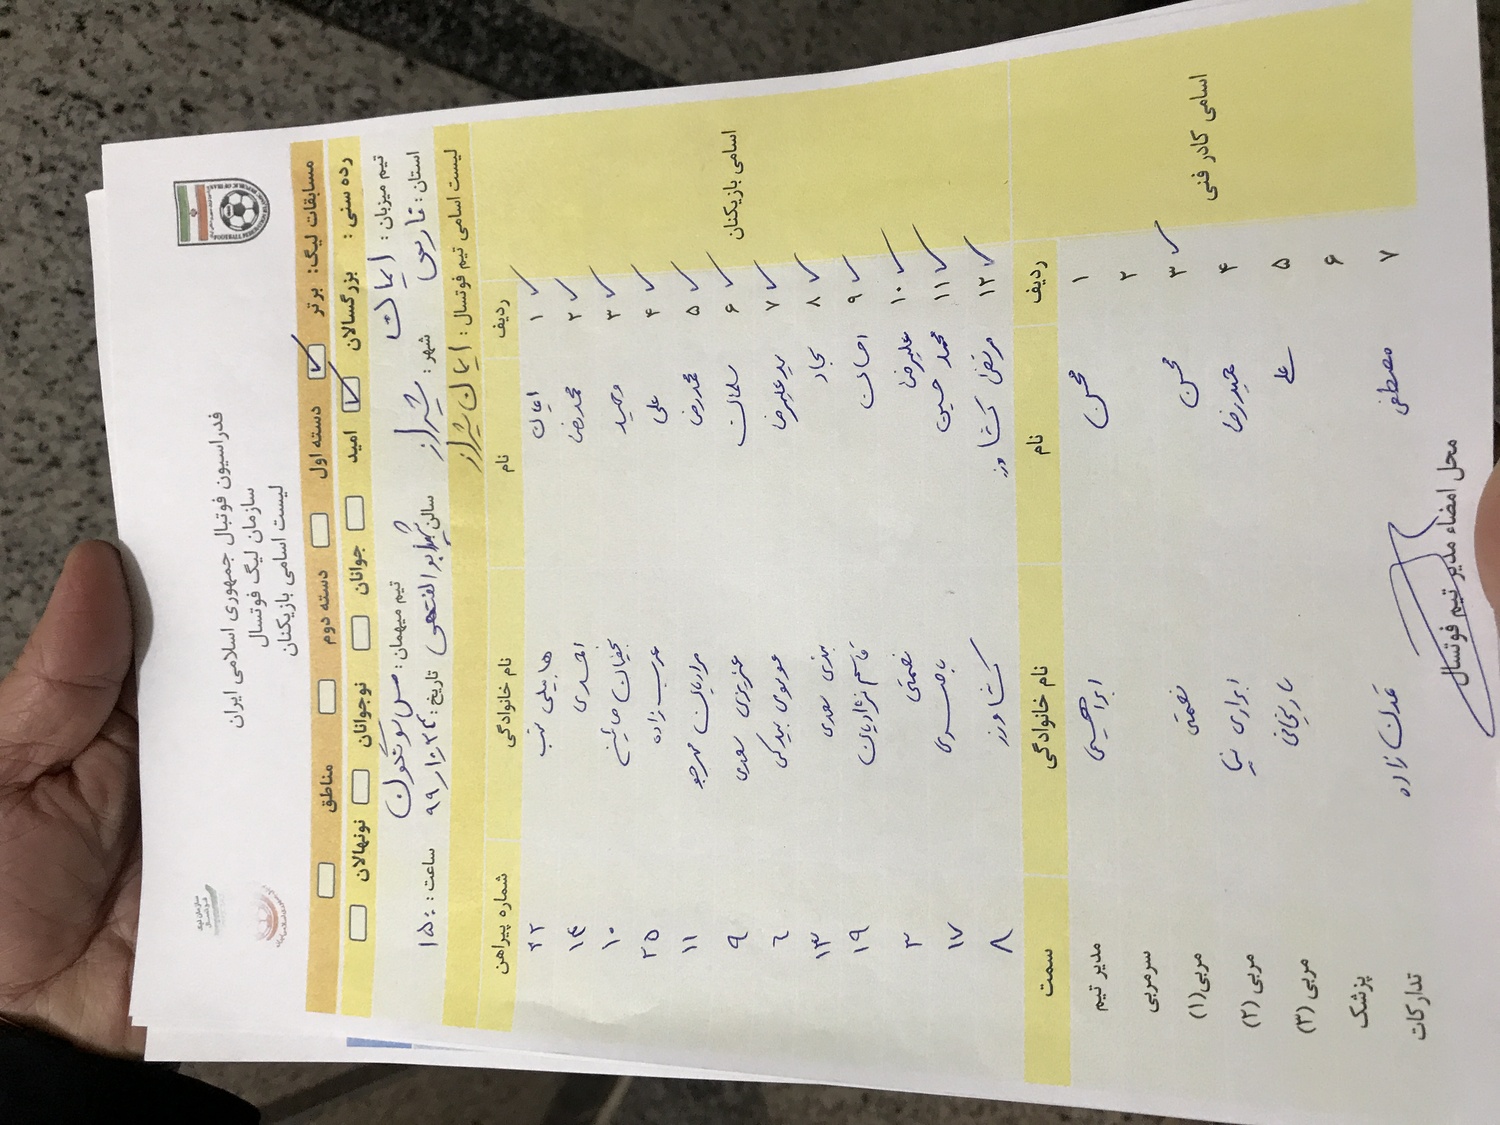 فدراسیون فوتبال جمهوری اسلامی ایران
سازمان لیگ فوتسال
لیست اسامی بازیکنان
مسابقات لیگ: برتر دسته اول دسته دوم مناطق
رده سنی : بزرگسالان امید جوانان نوجوانان نونهالان
تیم میزبان : ایمان تیم میهمان : مس سونگون
استان : فارس شهر : شیراز سالن تاریخ: ساعت : ۱۵:۰۰
لیست اسامی تیم فوتسال : ایمان شیراز
اسامی بازیکنان
ردیف نام نام خانوادگی شماره پیراهن
۱ ایمان ۲۲
۲ محمدرضا احمدی ۱۴
۳ وحید ۱۰
۴ علی عرب زاده ۲۵
۵ محمدرضا ۱۱
۶ سلمان عزیزی سعدی ۹
۷ سیدعلیرضا موسوی ۶
۸ سجاد سعدی ۱۳
۹ احسان قاسم نژادیان ۱۹
۱۰ علیرضا نعمتی ۳
۱۱ محمد حسین ۱۷
۱۲ مرتضی کشاورز کشاورز ۸
اسامی کادر فنی
ردیف نام نام خانوادگی سمت
۱ محسن ابراهیمی مدیر تیم
۲ سرمربی
۳ محسن نعمتی مربی(۱)
۴ حمیدرضا ابراری نیا مربی (۲)
۵ علی مربی (۳)
۶ پزشک
۷ مصطفی زاده تدارکات
محل امضاء مدیر تیم فوتسال